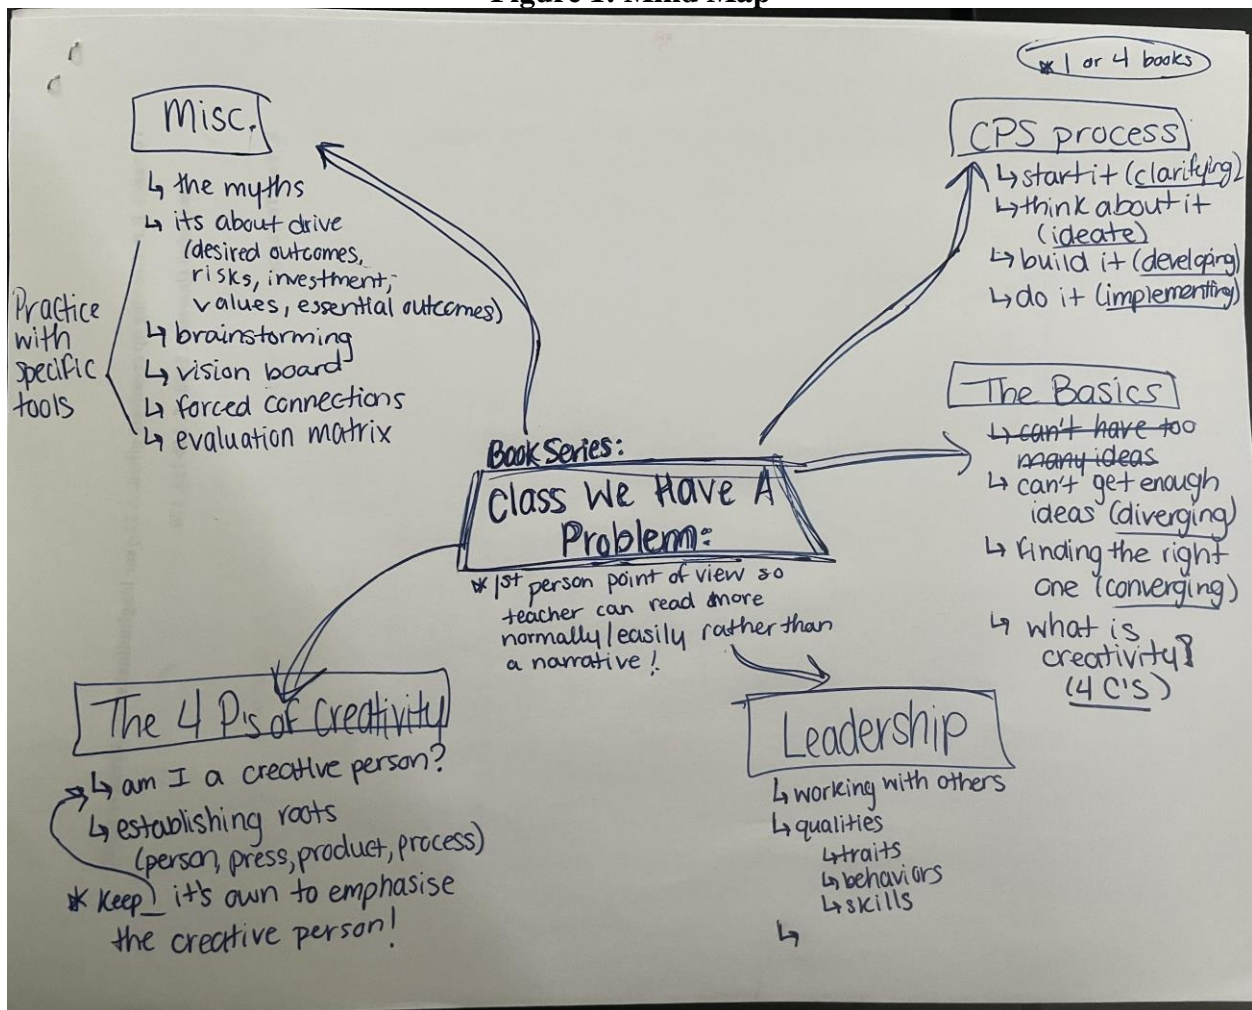 Figure 1. Mind Map
* 1 or 4 books
Misc.
↳ the myths
↳ its about drive
(desired outcomes,
risks, investment,
values, essential outcomes)
↳ brainstorming
↳ vision board
↳ forced connections
↳ evaluation matrix
Practice
with
specific
tools
CPS process
↳ start it (clarifying)
↳ think about it
(ideate)
↳ build it (developing)
↳ do it (implementing)
The Basics
↳ can't have too
many ideas
↳ can't get enough
ideas (diverging)
↳ finding the right
one (converging)
↳ what is
creativity?
(4 C's)
Book Series:
Class We Have A
Problem:
* 1st person point of view so
teacher can read more
normally/easily rather than
a narrative!
The 4 P's of Creativity
↳ am I a creative person?
↳ establishing roots
(person, press, product, process)
* Keep it's own to emphasise
the creative person!
Leadership
↳ working with others
↳ qualities
↳ traits
↳ behaviors
↳ skills
↳